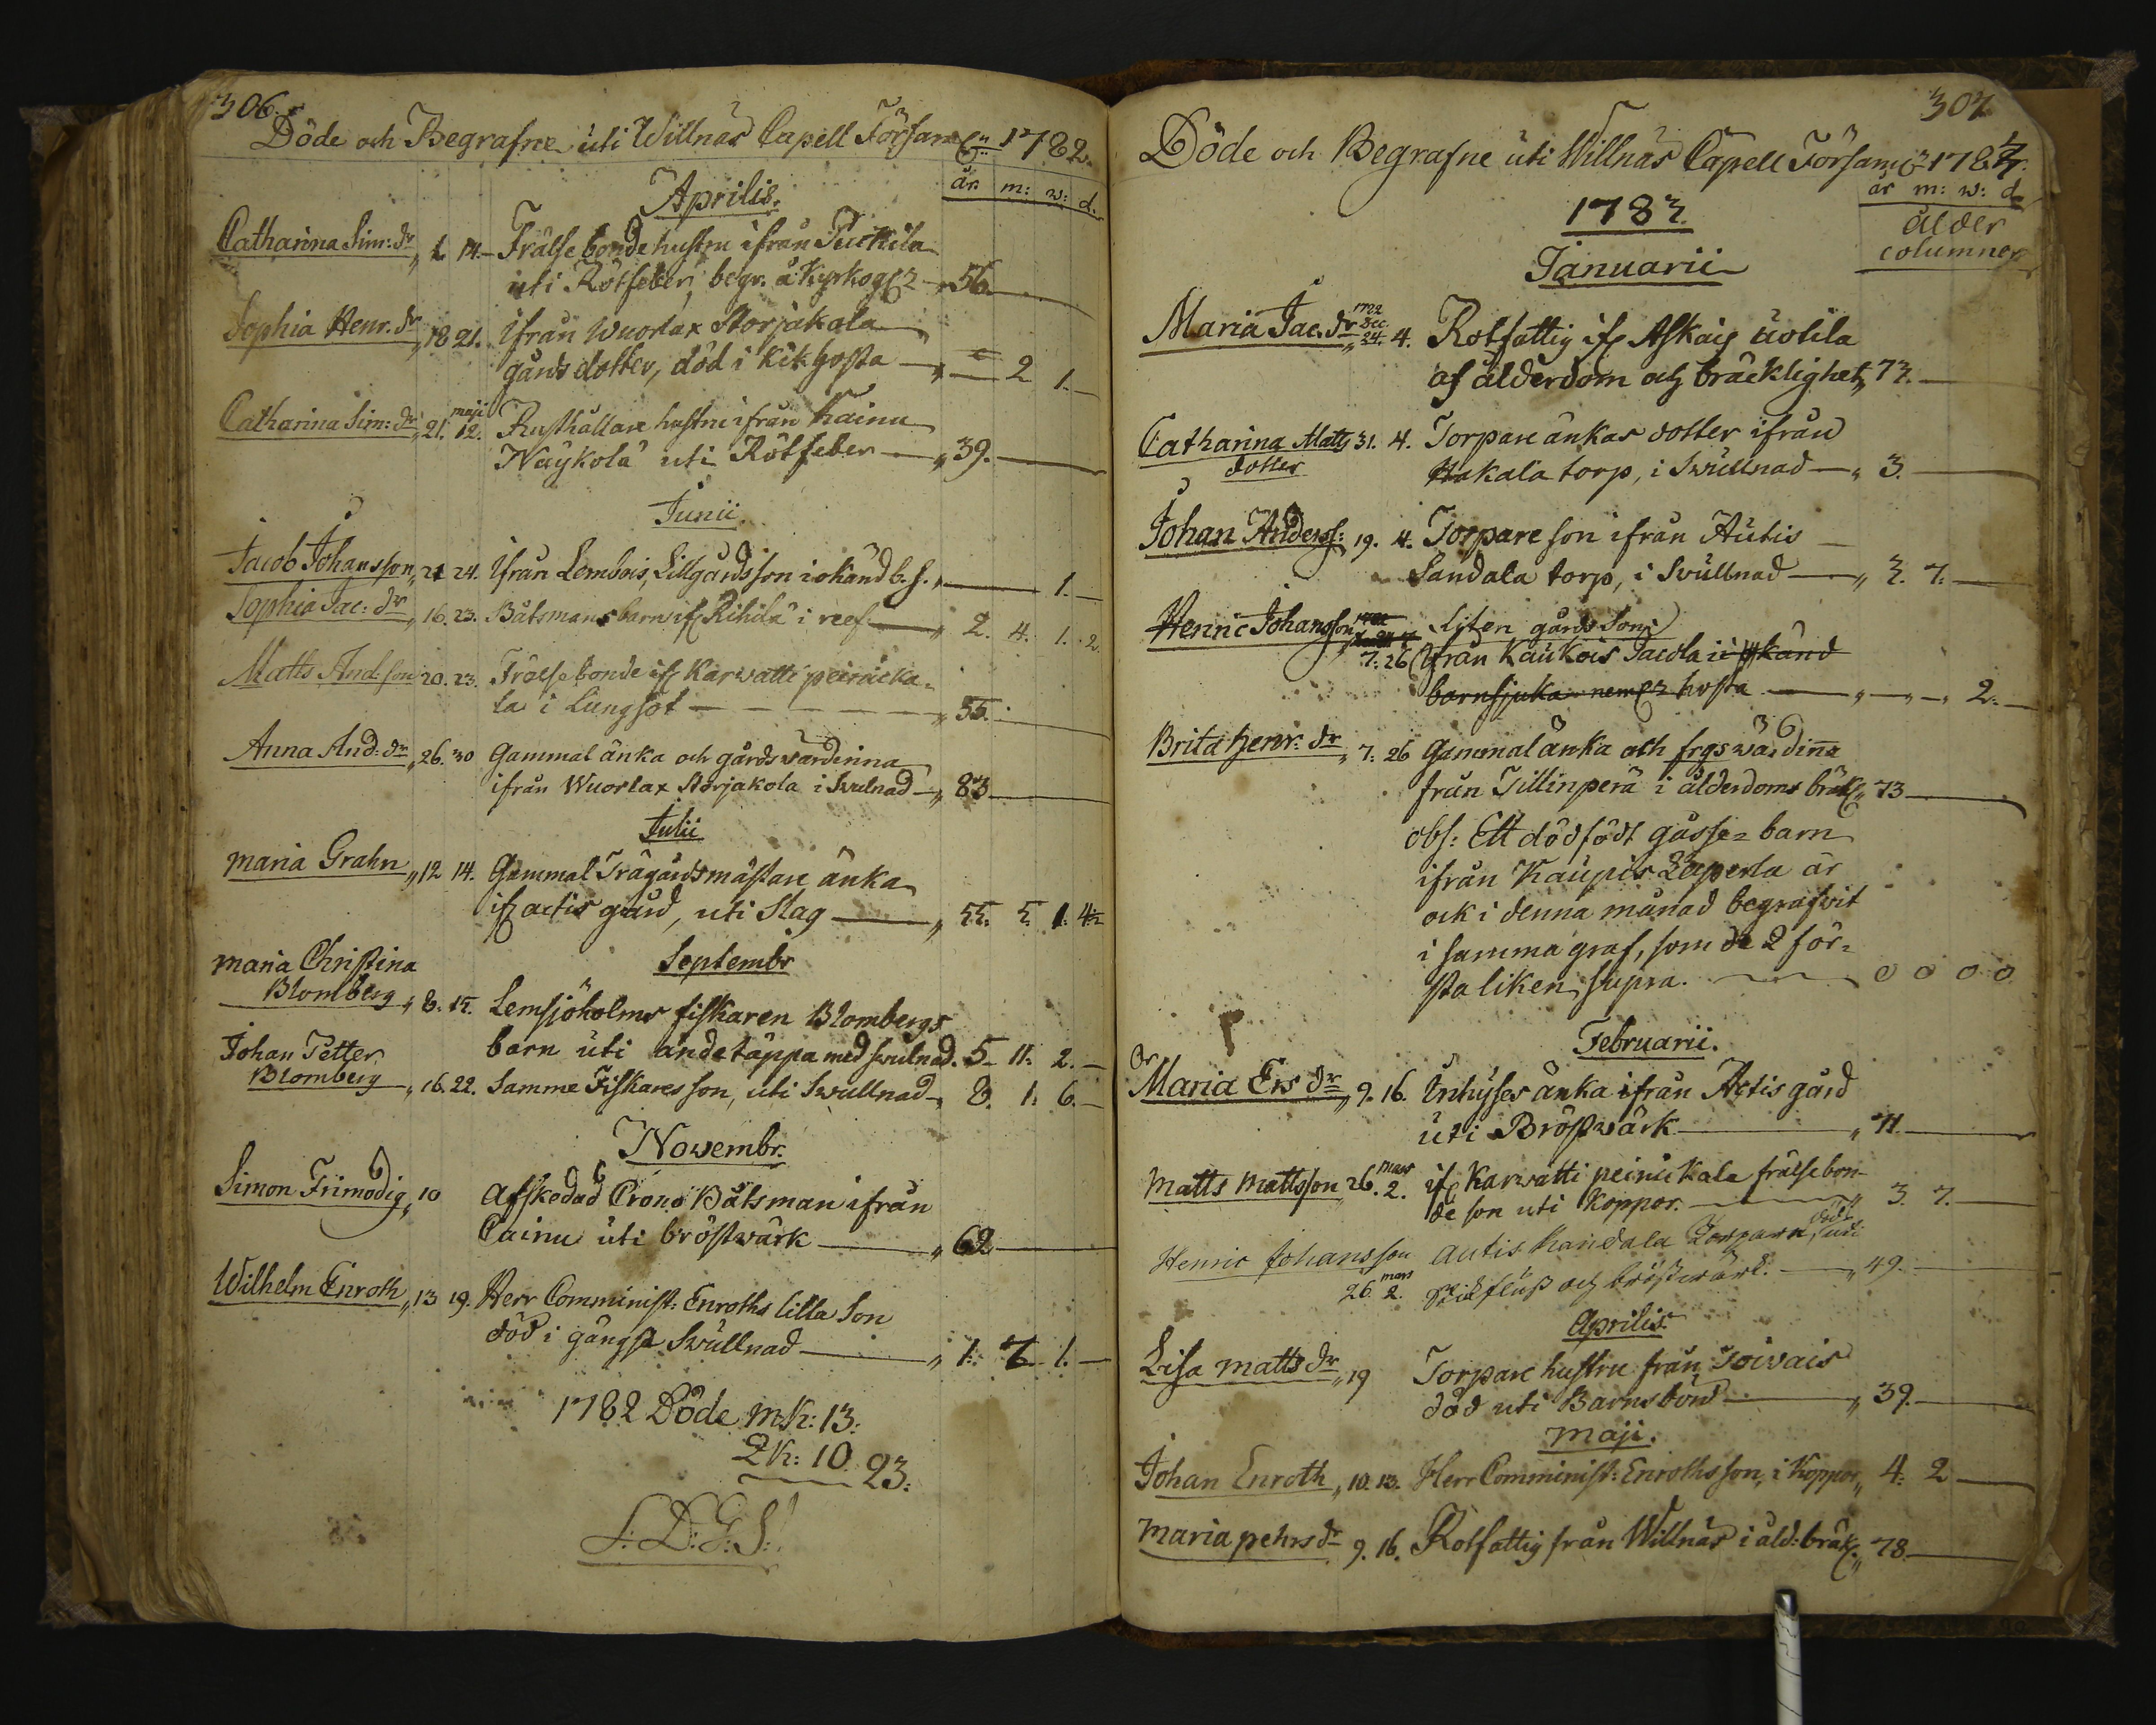 306.
Döde och Begrafne uti Willnäs Capell Församl:n 1782.
Aprilis. år m: w: d.
Catharina Sim: dr 1. 14. Frälsebonde hustru ifrån
uti Rötfeber, begr. å Kyrkog: 56.
Sophia Henr. dr 18 21. ifrån Wuorlax Storjakola
gårds dotter, död i Kikhosta 2 1.
Catharina Sim: dr 21. maji 12. Rusthållare hustru ifrån Kainu
Näykolä uti Rötfeber 39.
Junii
Jacob Johansson 21 24. ifrån Lembois, Lillgårds son i okänd b. s. 1.
Sophia Jac: dr 16. 23. Båtsmans barn if: Rihilä i reef 2. 4. 1. 2
Matts And: son 20. 23. Frälsebonde if: Karwatti peiräcka-
la i Lungsot 55.
Anna And: dr 26. 30 Gammal änka och gårdswärdinna
ifrån Wuorlax Storjakola i Swulnad 83
Julii
Maria Grahn 12 14. Gammal Trägårdsmästare änka
if: actis gård, uti Slag 55. 5 1. 4
Maria Christina Septembr
Blomberg 8. 15. Lemsjöholms fiskaren Blombergs
barn uti andetäppa med swulnad. 5 11. 2.
Johan Petter
Blomberg 16. 22. Samme Fiskares son, uti Swullnad 8. 1. 6.
Novembr.
Simon Frimodig 10 Afskedad Crono Båtsman ifrån
Cainu uti bröstwärk 62
Wilhelm Enroth 13 19. Herr Comminist: Enroths lilla Son
död i gångse Swullnad 1. 7 1.
1782 Döde mk: 13.
Qk: 10. 23.
S: D: G: S!
307
Döde och Begrafne uti Willnäs Capell Församl: 1783.
år m: w: d
1783. ålder
columner
Januarii
Maria Jac. dr 1782 Dec. 24. 4. Rotfattig if: Askais
af ålderdom och bräcklighet 73.
Catharina Matts 31. 4. Torpare änkas dotter ifrån
dotter Hakala torp, i Swullnad 3.
Johan Anderss: 19. 4. Torpare son ifrån Autis
Sandala torp, i Swullnad 3. 7.
Henric Johansson Liten gårds son
7. 26 ifrån Kaukois Jacola i okänd
barnsjuka hosta 2.
Brita Henr: dr 7. 26 Gammal änka och frgs wärdinna
från Tillinperä i ålderdoms bräk: 73
obs: Ett dödfödt gåsse-barn
ifrån Kaupis Laperla är
ock i denna månad begrafwit
i samma graf, som de 2 för-
sta liken supra. 0 0 0 0
Februarii.
Maria Ers dr 9. 16. Inhyses änka ifrån Actis gård
uti Bröstwärk 71.
Matts Mattsson 26. Mars 2. if: Karwatti peinikala frälsebon-
de son uti Koppor. 3. 7.
Henric Johansson autis Kandala Torpare, död uti
26. mars 2. och bröstwärk. 49.
Aprilis
Lisa Matts dr 19 Torpare hustru från Toivais
död uti Barnsbörd 39.
Maji.
Johan Enroth 10. 13. Herr Comminist: Enroths son, i Koppor 4. 2
Maria pehrs dr 9. 16. Rotfattig från Willnäs i åld: bräk: 78.